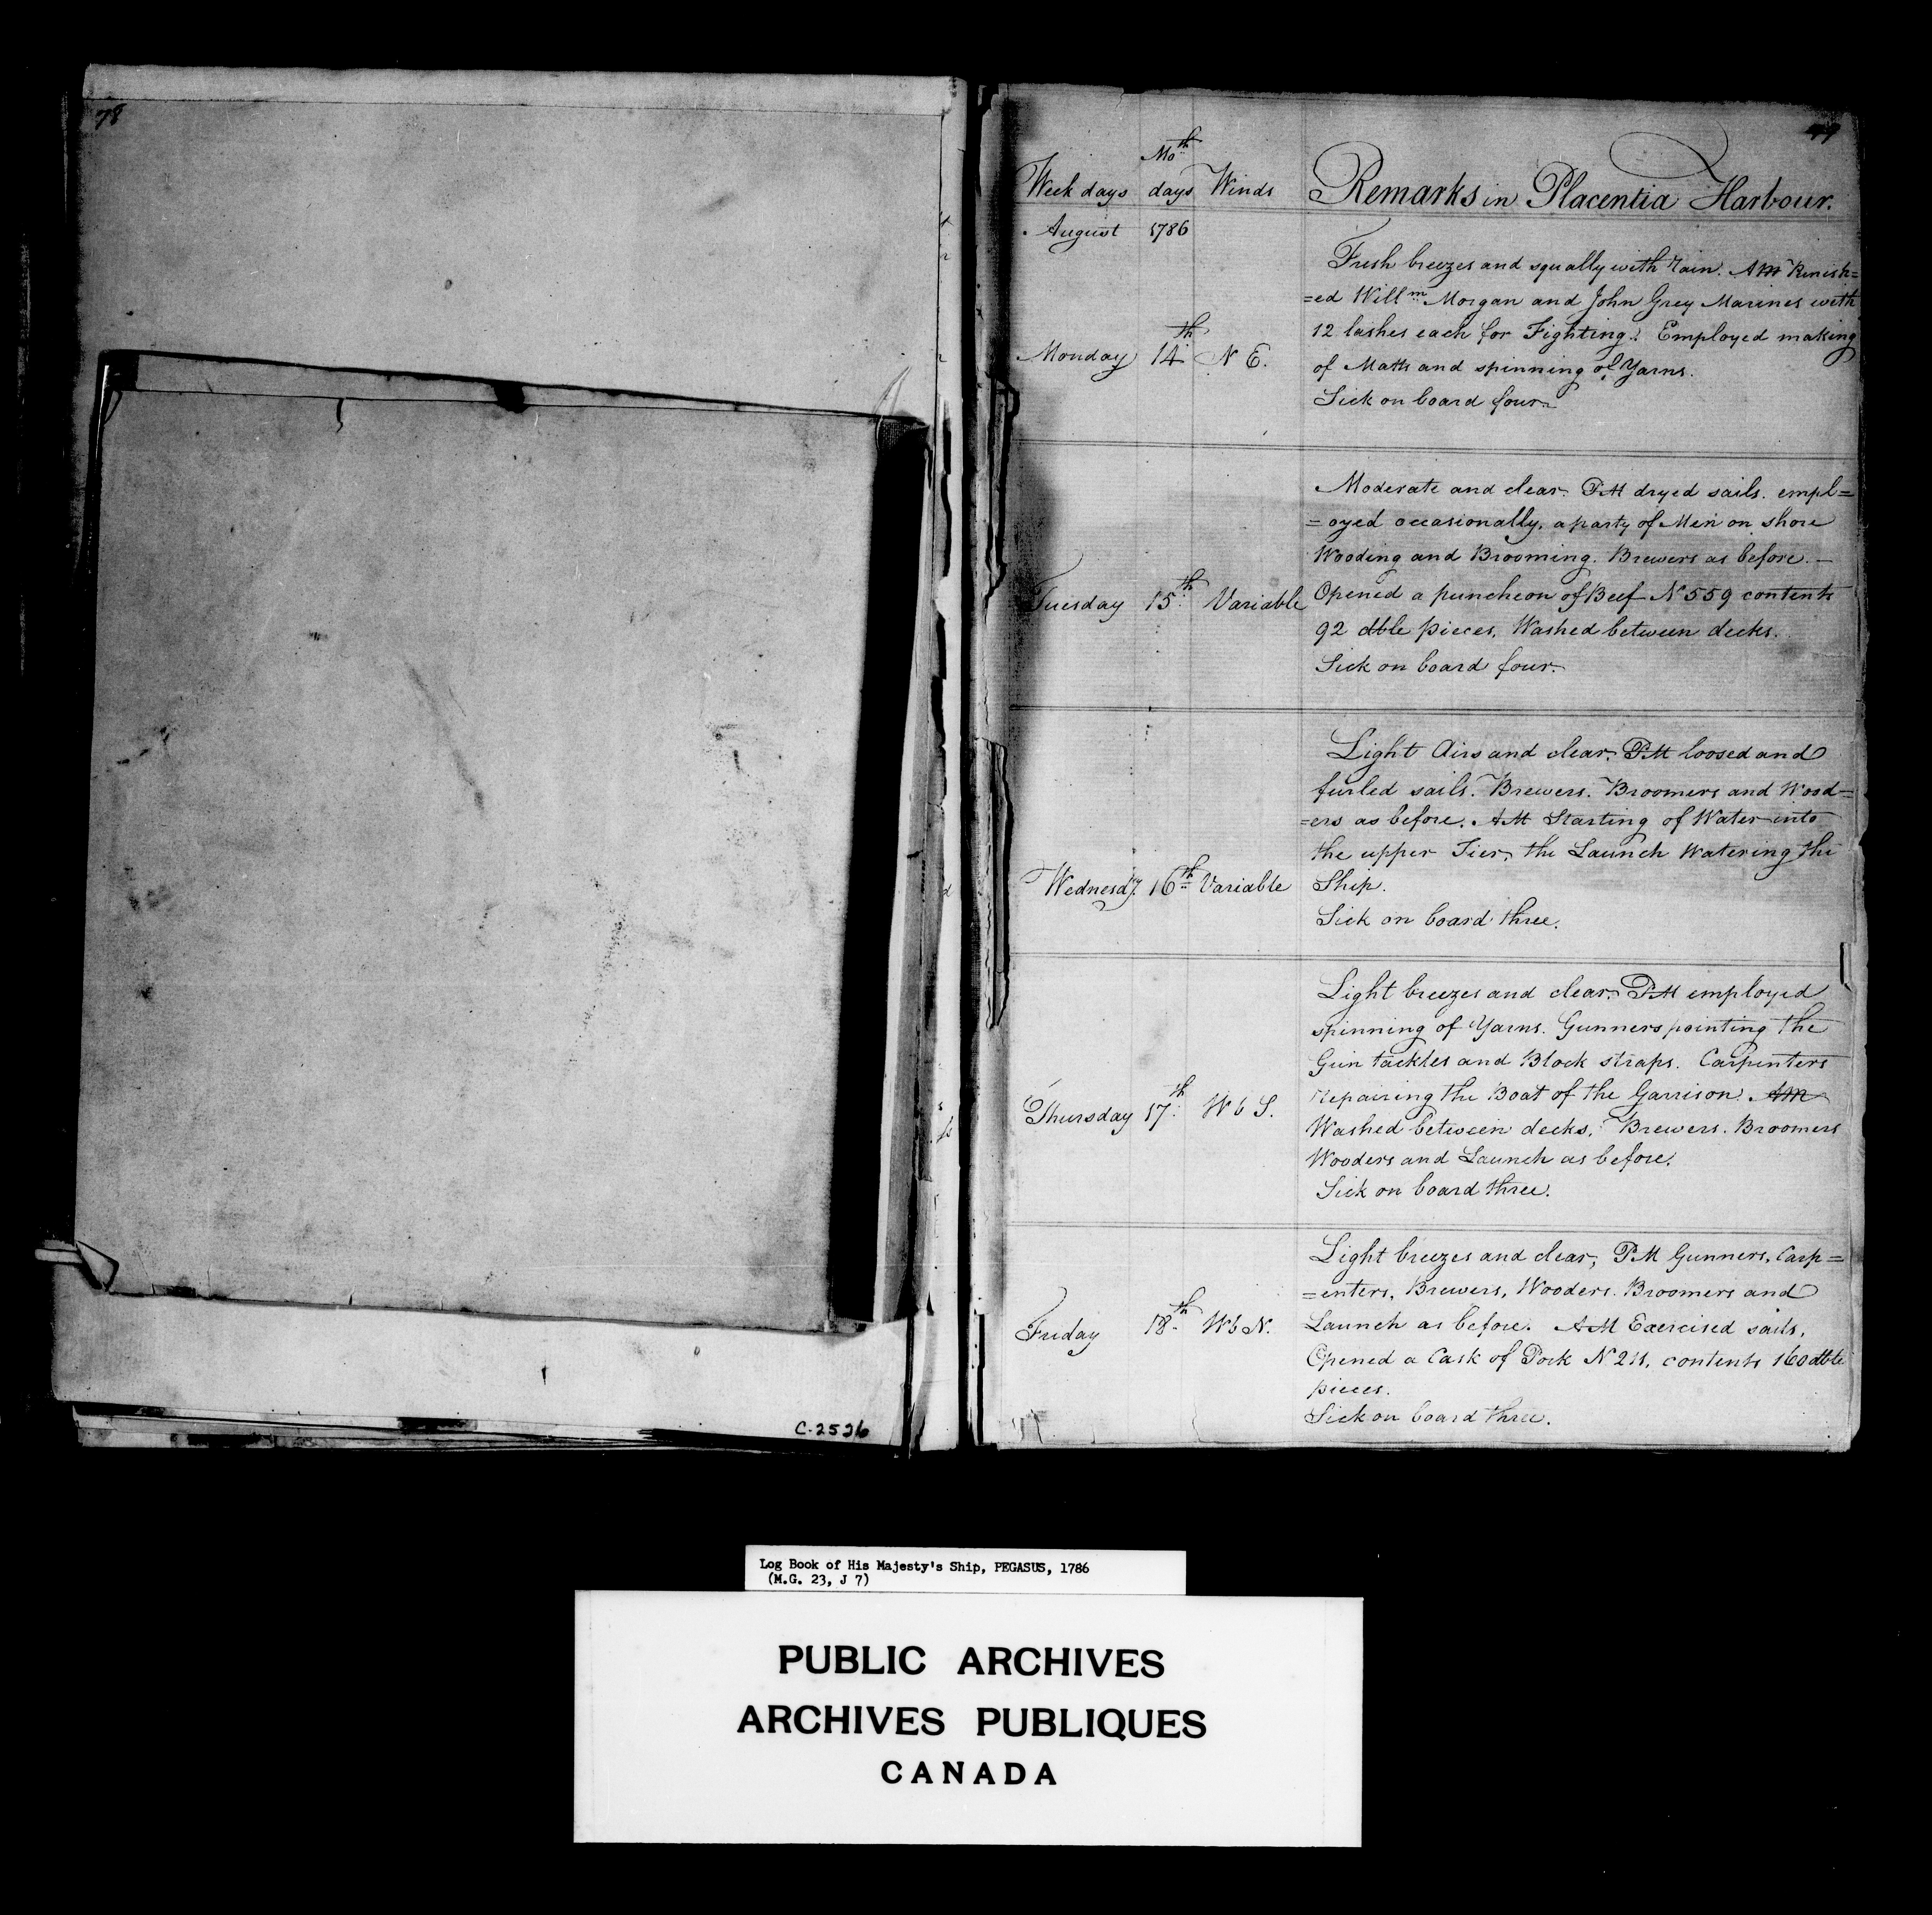 78
79
Moth
Week days days Winds Remarks in Placentia Harbour.
August 1786
Fresh breezes and squally with rain. AM Punish=
=ed Willm Morgan and John Grey Marines with
12 lashes each for Fighting. Employed making
Monday 14th N E. of Matts and spinning of Yarns.
Sick on board four.
Moderate and clear. PM dryed sails. empl=
=oyed occasionally, a party of Men on shore
Wooding and Brooming. Brewers as before. —
Tuesday 15th Variable Opened a puncheon of Beef No 559 contents
92 dble pieces. Washed between decks.
Sick on board four.
Light Airs and clear. PM loosed and
furled sails. Brewers. Broomers and Wood=
=ers as before. AM Starting of Water into
the upper Tier, the Launch Watering the
Wednesdy. 16th Variable Ship.
Sick on board three.
Light breezes and clear. PM employed
spinning of Yarns. Gunners pointing the
Gun tackles and Block straps. Carpenters
Thursday 17th W b S. repairing the Boat of the Garrison. AM
Washed between decks. Brewers. Broomers
Wooders and Launch as before.
Sick on board three.
Light breezes and clear, PM Gunners, Carp=
=enters, Brewers, Wooders. Broomers and
Friday 18th W b N. Launch as before. AM Exercised sails.
Opened a Cask of Pork No 211. contents 160 dble
pieces.
Sick on board three.
C-2526
Log Book of His Majesty's Ship, PEGASUS, 1786
(M.G. 23, J 7)
PUBLIC ARCHIVES
ARCHIVES PUBLIQUES
CANADA